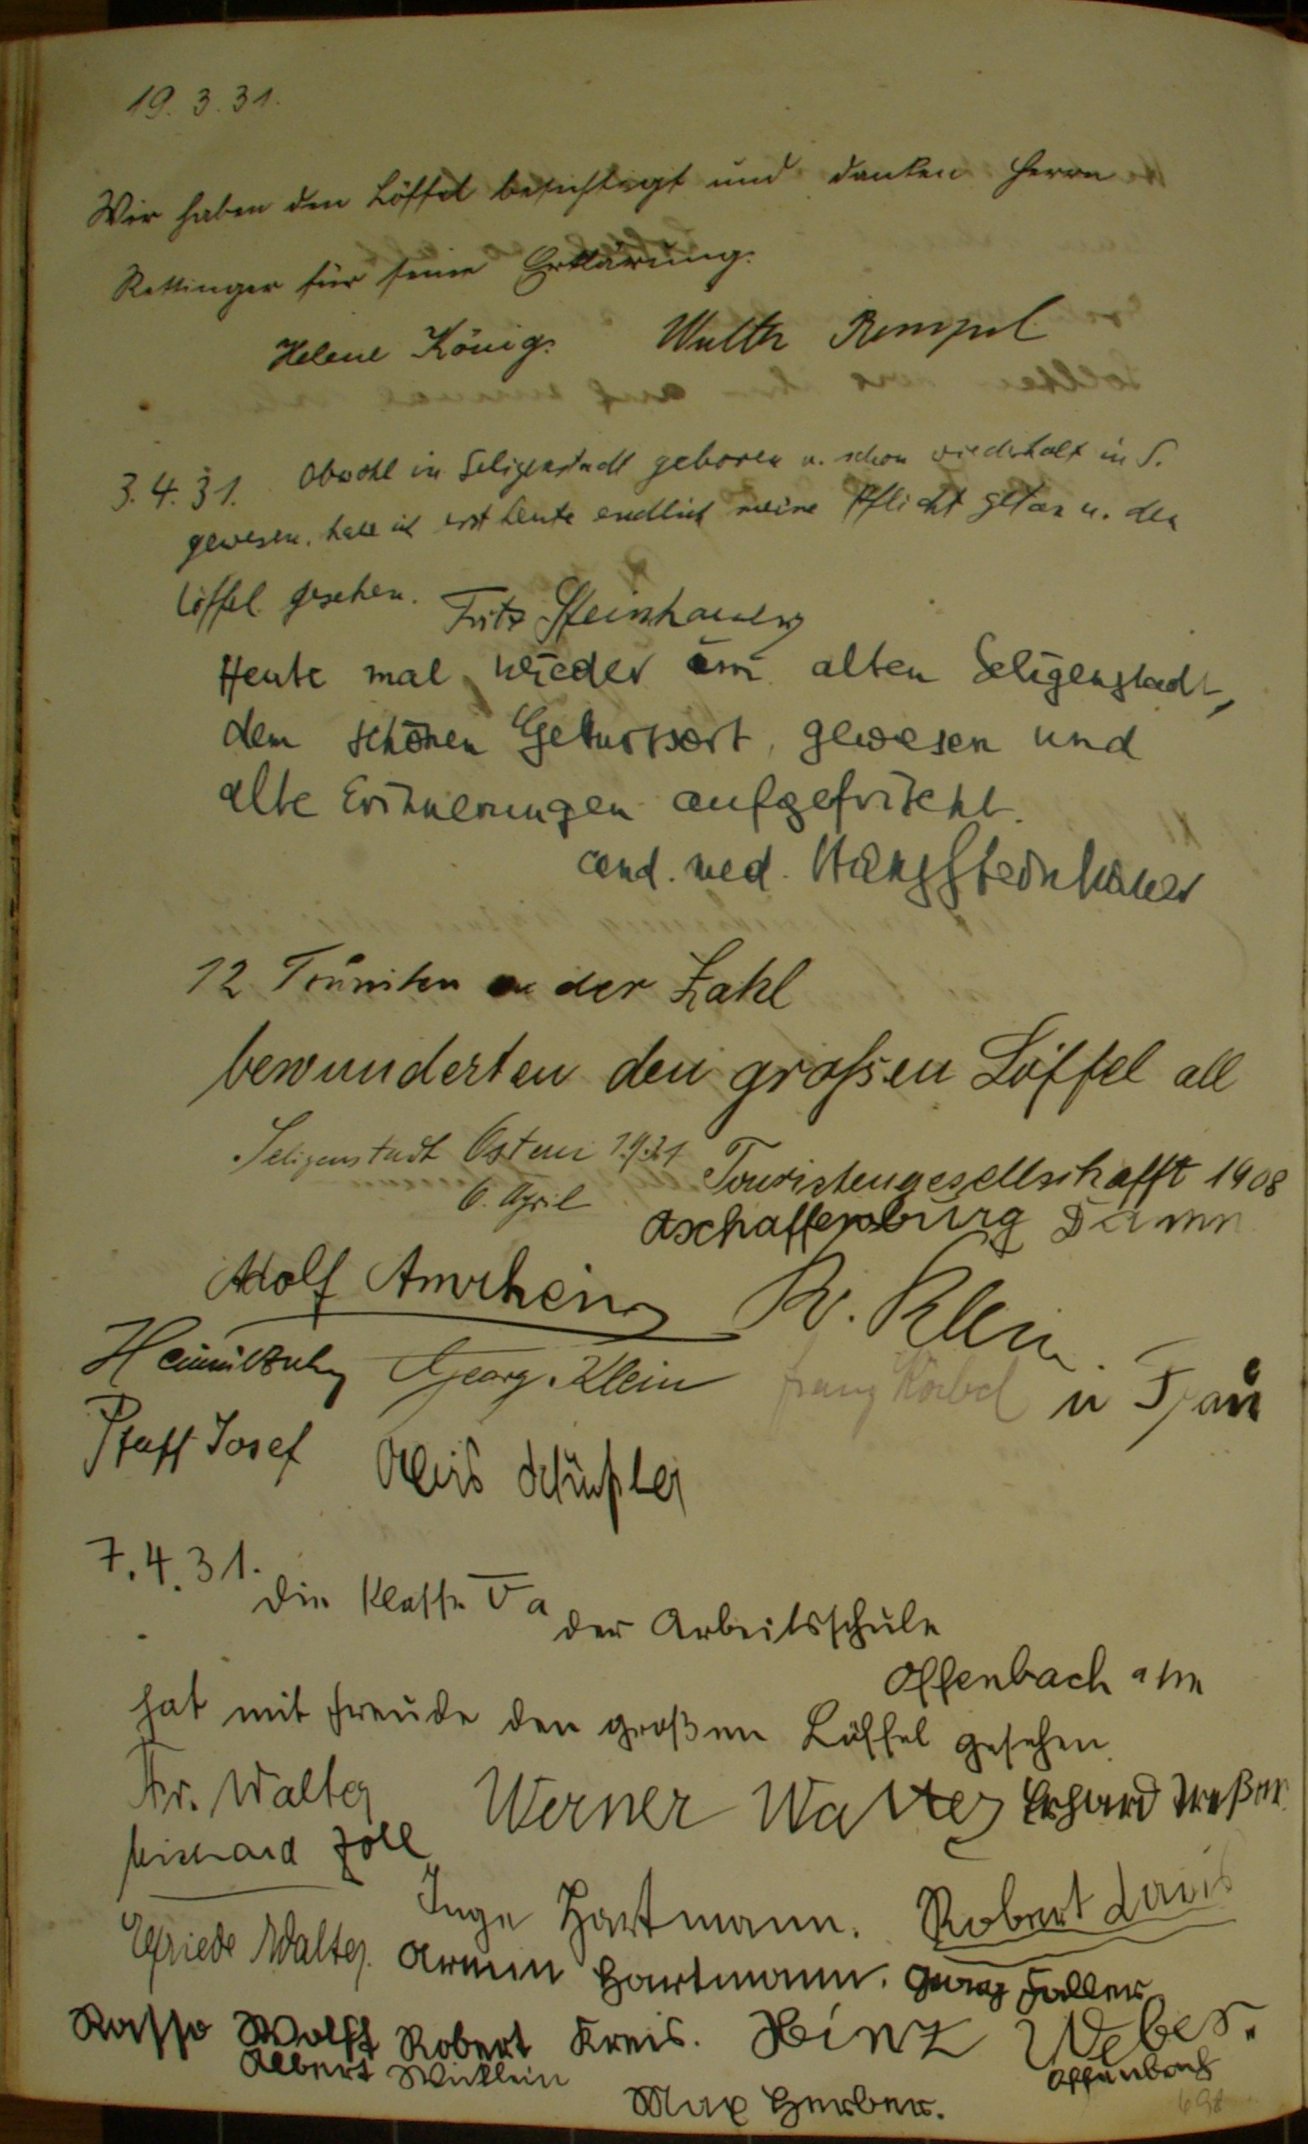 19. 3. 31.
Wir haben den Löffel besichtigt und danken Herrn
Rettinger für seine Erklärung.
Helene König. Walter Rempel
3. 4. 31. Obwohl in Seligenstadt geboren u. schon wiederholt in S.
gewesen, habe ich erst heute endlich meine Pflicht getan u. den
Löffel gesehen. Fritz Steinhauer
Heute mal wieder im alten Seligenstadt,
dem schönen Geburtsort, gewesen und
alte Erinnerungen aufgefrischt.
cand. med. Hans Steinhauer
12 Touristen an der Zahl
bewunderten den großen Löffel all
Seligenstadt Ostern 1931 Touristengesellschafft 1908
6. April Aschaffenburg Damm
Adolf Amrhein R. Klein
Georg Klein Franz Körbel u Frau
Pfaff Josef Alois Schüßler
7. 4. 31.
Die Klasse Va der Arbeitsschule
Offenbach a/m
hat mit Freude den großen Löffel gesehen.
Fr. Walter Werner Walter Erhard
Richard Zoll
Inge Hartmann. Robert
Elfriede Walter. Armin Hartmann. Georg Faller
Wolff Robert Kreis. Heinz Weber.
Albert Wicklein Offenbach
Max Herber.
698